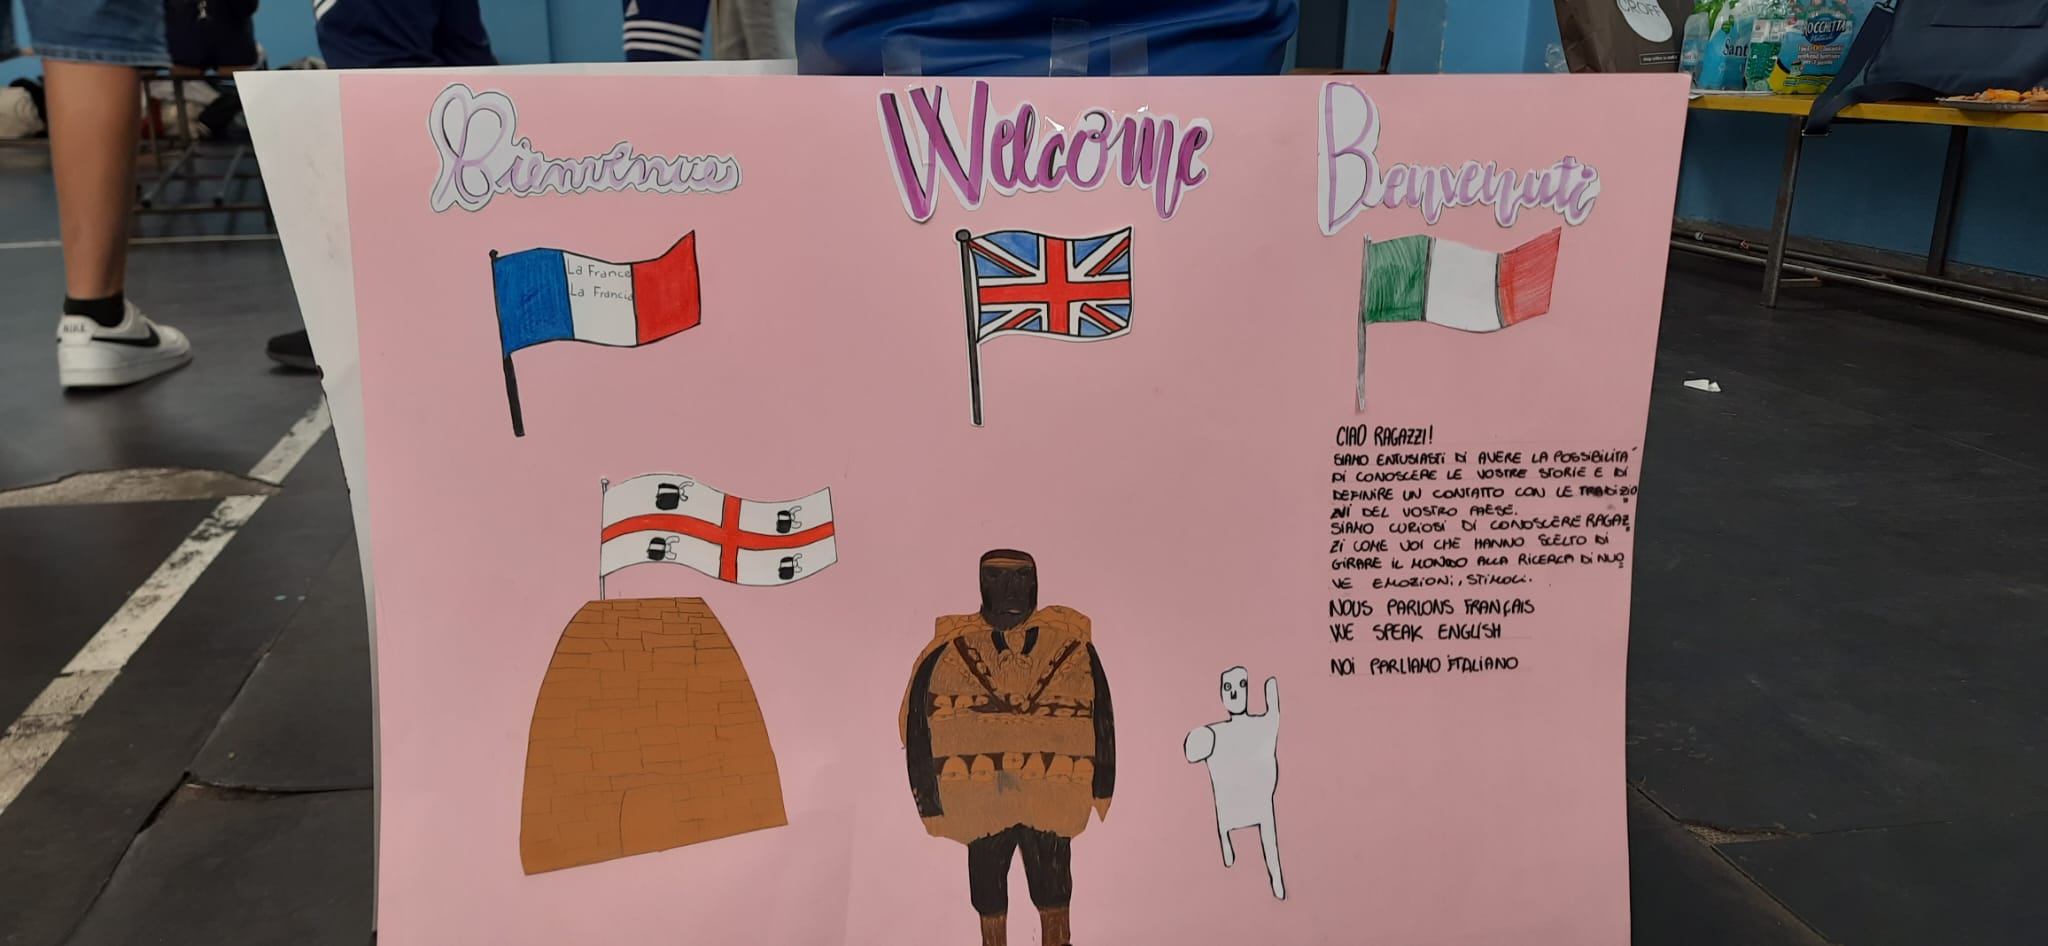 Bienvenue
Welcome
Benvenuti
La France
La Francia
CIAO RAGAZZI!
SIAMO ENTUSIASTI DI AVERE LA POSSIBILITA'
DI CONOSCERE LE VOSTRE STORIE E DI
DEFINIRE UN CONTATTO CON LE TRADIZIO
NI DEL VOSTRO PAESE.
SIAMO CURIOSI DI CONOSCERE RAGAZ
ZI COME VOI CHE HANNO SCELTO DI
GIRARE IL MONDO ALLA RICERCA DI NUO
VE EMOZIONI, STIMOLI.
NOUS PARLONS FRANÇAIS
WE SPEAK ENGLISH
NOI PARLIAMO ITALIANO
NIKE
CROFF
Sant
ROCCHETTA